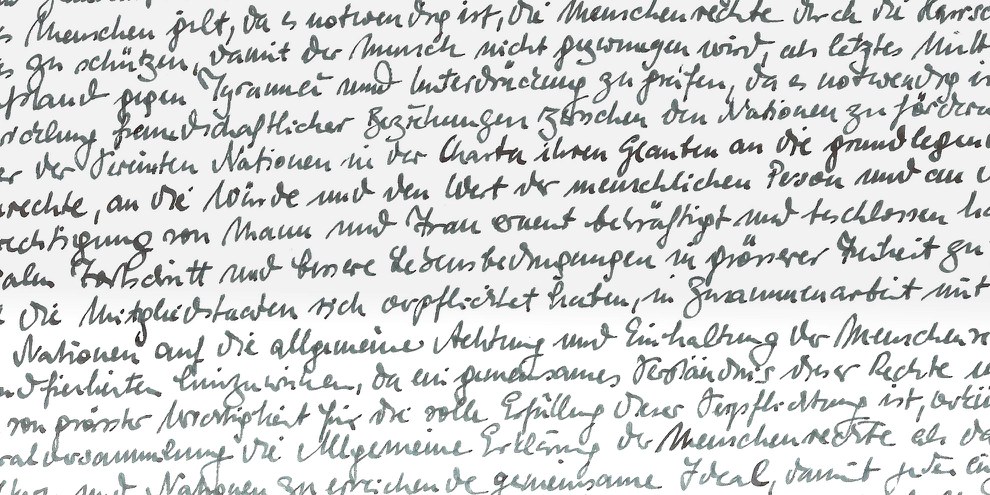 Menschen gilt, da es notwendig ist, die Menschenrechte durch die
zu schützen, damit der Mensch nicht gezwungen wird, als letztes
gegen Tyrannei und Unterdrückung zu greifen, da es notwendig
freundschaftlicher Beziehungen zwischen den Nationen zu
der Vereinten Nationen in der Charta ihren Glauben an die
an die Würde und den Wert der menschlichen Person und an
von Mann und Frau erneut bekräftigt und beschlossen
Fortschritt und bessere Lebensbedingungen in grösserer Freiheit zu
die Mitgliedstaaten sich verpflichtet haben, in Zusammenarbeit mit
Nationen auf die allgemeine Achtung und Einhaltung der
hinzuwirken, da ein gemeinsames Verständnis dieser Rechte
von grösster Wichtigkeit für die volle Erfüllung dieser Verpflichtung ist,
die Allgemeine Erklärung der Menschenrechte als
und Nationen zu erreichende gemeinsame Ideal, damit